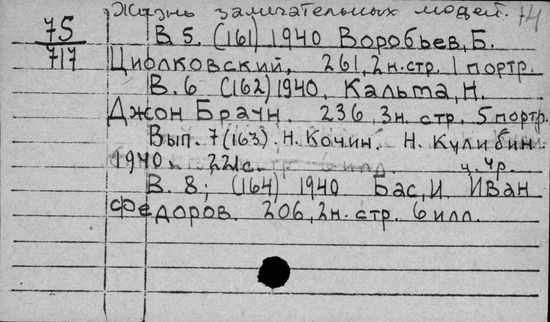 Жизнь замечательных людей. 14
75
717
В 5. (161) 1940 Воробьев, Б.
Циолковский, 261, 2 н. стр. 1 портр.
В. 6 (162) 1940. Кальма, Н.
Джон Браун. 236, 3н. стр. 5 портр.
Вып. 7 (163). Н. Кочин. Н. Кулибин
1940. 221с. ч. 4р.
В. 8; (164) 1940 Бас, И. Иван
Федоров. 206, 2н. стр. 6 илл.